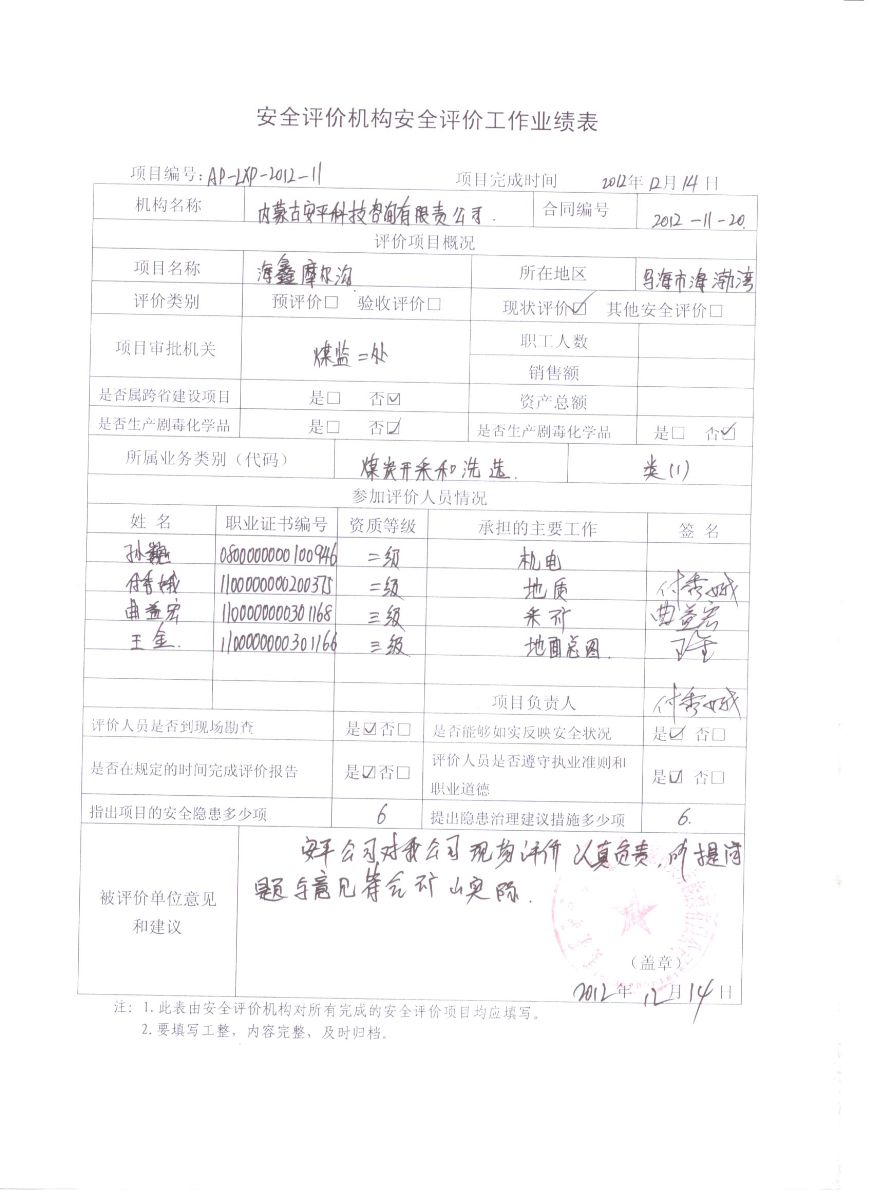 安全评价机构安全评价工作业绩表
项目编号：AP-LXP-2012-11 项目完成时间 2012年12月14日
机构名称 内蒙古安平科技咨询有限责任公司. 合同编号 2012-11-20.
评价项目概况
项目名称 海鑫摩尔沟 所在地区 乌海市海渤湾
评价类别 预评价□ 验收评价□ 现状评价☑ 其他安全评价□
项目审批机关 煤监二处 职工人数
销售额
是否属跨省建设项目 是□ 否☑ 资产总额
是否生产剧毒化学品 是□ 否☑ 是否生产剧毒化学品 是□ 否☑
所属业务类别（代码） 煤炭开采和洗选. 类(1)
参加评价人员情况
姓 名 职业证书编号 资质等级 承担的主要工作 签 名
孙巍 0800000000100946 二级 机电
付秀娥 1100000000200375 二级 地质 付秀娥
曲益宏 1100000000301168 三级 采矿 曲益宏
王金. 1100000000301166 三级 地面总图. 王金
项目负责人 付秀娥
评价人员是否到现场勘查 是☑否□ 是否能够如实反映安全状况 是☑ 否□
是否在规定的时间完成评价报告 是☑否□ 评价人员是否遵守执业准则和
职业道德 是☑ 否□
指出项目的安全隐患多少项 6 提出隐患治理建议措施多少项 6.
被评价单位意见
和建议
安平公司对我公司现场评价认真负责，所提问
题与意见符合矿山实际.
（盖章）
2012年12月14日
注：1.此表由安全评价机构对所有完成的安全评价项目均应填写。
2.要填写工整，内容完整，及时归档。